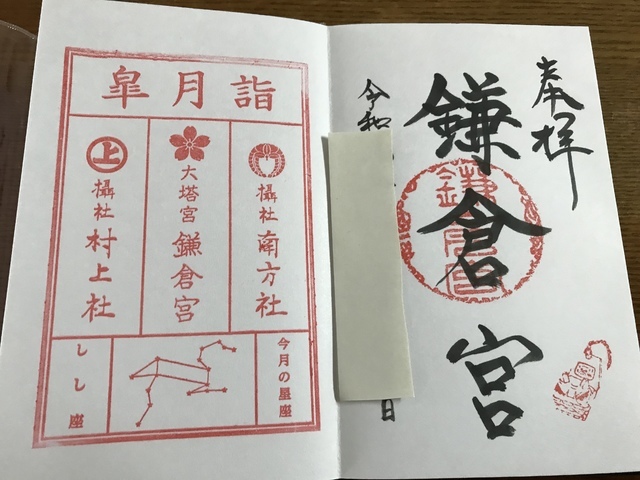 奉拝
鎌倉宮
鎌倉宮
令和
日
皐月詣
攝社 南方社
大塔宮 鎌倉宮
上
攝社 村上社
今月の星座
しし座